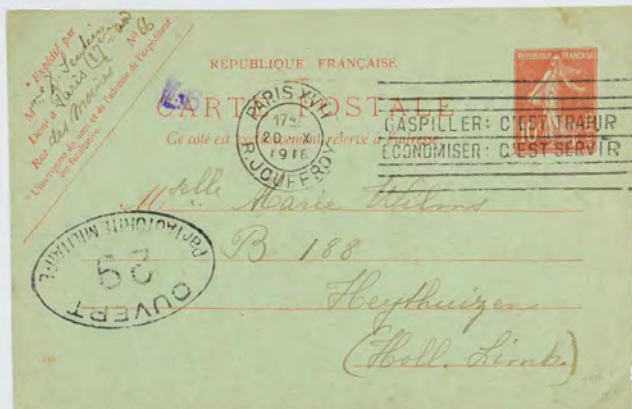 * Expédié par
Mme
Demt à Paris (17)
Rue des Moines No 66
* L'inscription du nom et de l'adresse de l'expéditeur
est facultative.
RÉPUBLIQUE FRANÇAISE
CARTE POSTALE
Ce côté est exclusivement réservé à l'adresse.
PARIS XVII
17
20 X
1918
R. JOUFFROY
GASPILLER: C'EST TRAHIR
ECONOMISER: C'EST SERVIR
REPUBLIQUE FRANÇAISE
10
Melle Marie Wilms
B 188
Heythuizen
(Holl. Limb.)
OUVERT
29
PAR L'AUTORITÉ MILITAIRE